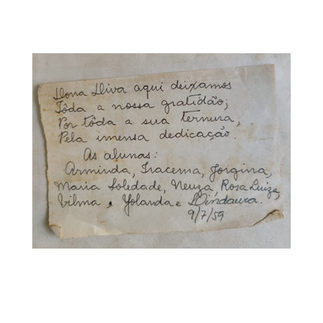 Dona Diva aqui deixamos
Tôda a nossa gratidão;
Por tôda a sua ternura,
Pela imensa dedicação.
As alunas:
Arminda, Iracema, Jorgina,
Maria Soledade, Neuza, Rosa Luiza,
Vilma, Yolanda e Dindaura.
9/7/59